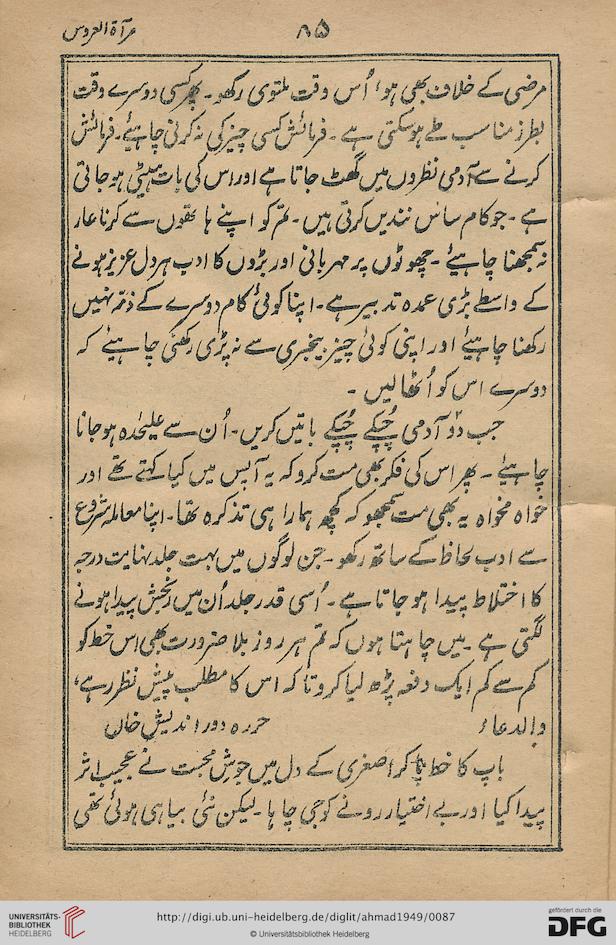 مرآۃ العروس
۸۵
مرضی کے خلاف بھی ہو، اُس وقت ملتوی رکھو۔ پھر کسی دوسرے وقت
بطرز مناسب طے ہو سکتی ہے۔ فرمائش کسی چیز کی نہ کرنی چاہیئے۔ فرمائش
کرنے سے آدمی نظروں میں گھٹ جاتا ہے اور اس کی بات ہیٹی ہو جاتی
ہے۔ جو کام ساس نندیں کرتی ہیں۔ تم کو اپنے ہاتھوں سے کرنا عار
نہ سمجھنا چاہیئے۔ چھوٹوں پر مہربانی اور بڑوں کا ادب ہر دل عزیز ہونے
کے واسطے بڑی عمدہ تدبیر ہے۔ اپنا کوئی کام دوسرے کے ذمہ نہیں
رکھنا چاہیئے اور اپنی کوئی چیز بیخبری سے نہ پڑی رکھنی چاہیئے کہ
دوسرے اس کو اُٹھالیں۔
جب دو آدمی چُپکے چُپکے باتیں کریں۔ اُن سے علیحدہ ہو جانا
چاہیئے۔ پھر اس کی فکر بھی مت کرو کہ یہ آپس میں کیا کہتے تھے اور
خواہ مخواہ یہ بھی مت سمجھو کہ کچھ ہمارا ہی تذکرہ تھا۔ اپنا معاملہ شروع
سے ادب لحاظ کے ساتھ رکھو۔ جن لوگوں میں بہت جلد نہایت درجہ
کا اختلاط پیدا ہو جاتا ہے۔ اُسی قدر جلد اُن میں رنجش پیدا ہونے
لگتی ہے۔ میں چاہتا ہوں کہ تم ہر روز بلا ضرورت بھی اس خط کو
کم سے کم ایک دفعہ پڑھ لیا کرو تا کہ اس کا مطلب پیش نظر رہے،
والدعاء حررہ دور اندیش خاں
باپ کا خط پا کر اصغری کے دل میں جوشِ محبت نے عجیب اثر
پیدا کیا اور بے اختیار رونے کو جی چاہا۔ لیکن نئی بیاہی ہوئی تھی
UNIVERSITÄTS-
BIBLIOTHEK
HEIDELBERG
http://digi.ub.uni-heidelberg.de/diglit/ahmad1949/0087
© Universitätsbibliothek Heidelberg
gefördert durch die
DFG